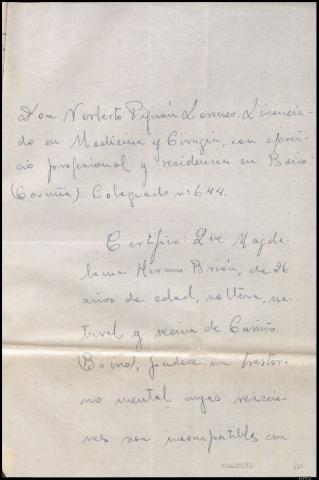 Don Norberto Piñán Lorenzo. Licencia-
do en Medicina y Cirugía, con ejerci-
cio profesional y residencia en Boiro
(Coruña). Colegiado nº 644.
Certifico: Que Magda-
lena Moreno Brión, de 26
años de edad, soltera, na-
tural y vecina de Cariño
(Boiro), padece un trastor-
no mental cuyas reaccio-
nes son incompatibles con